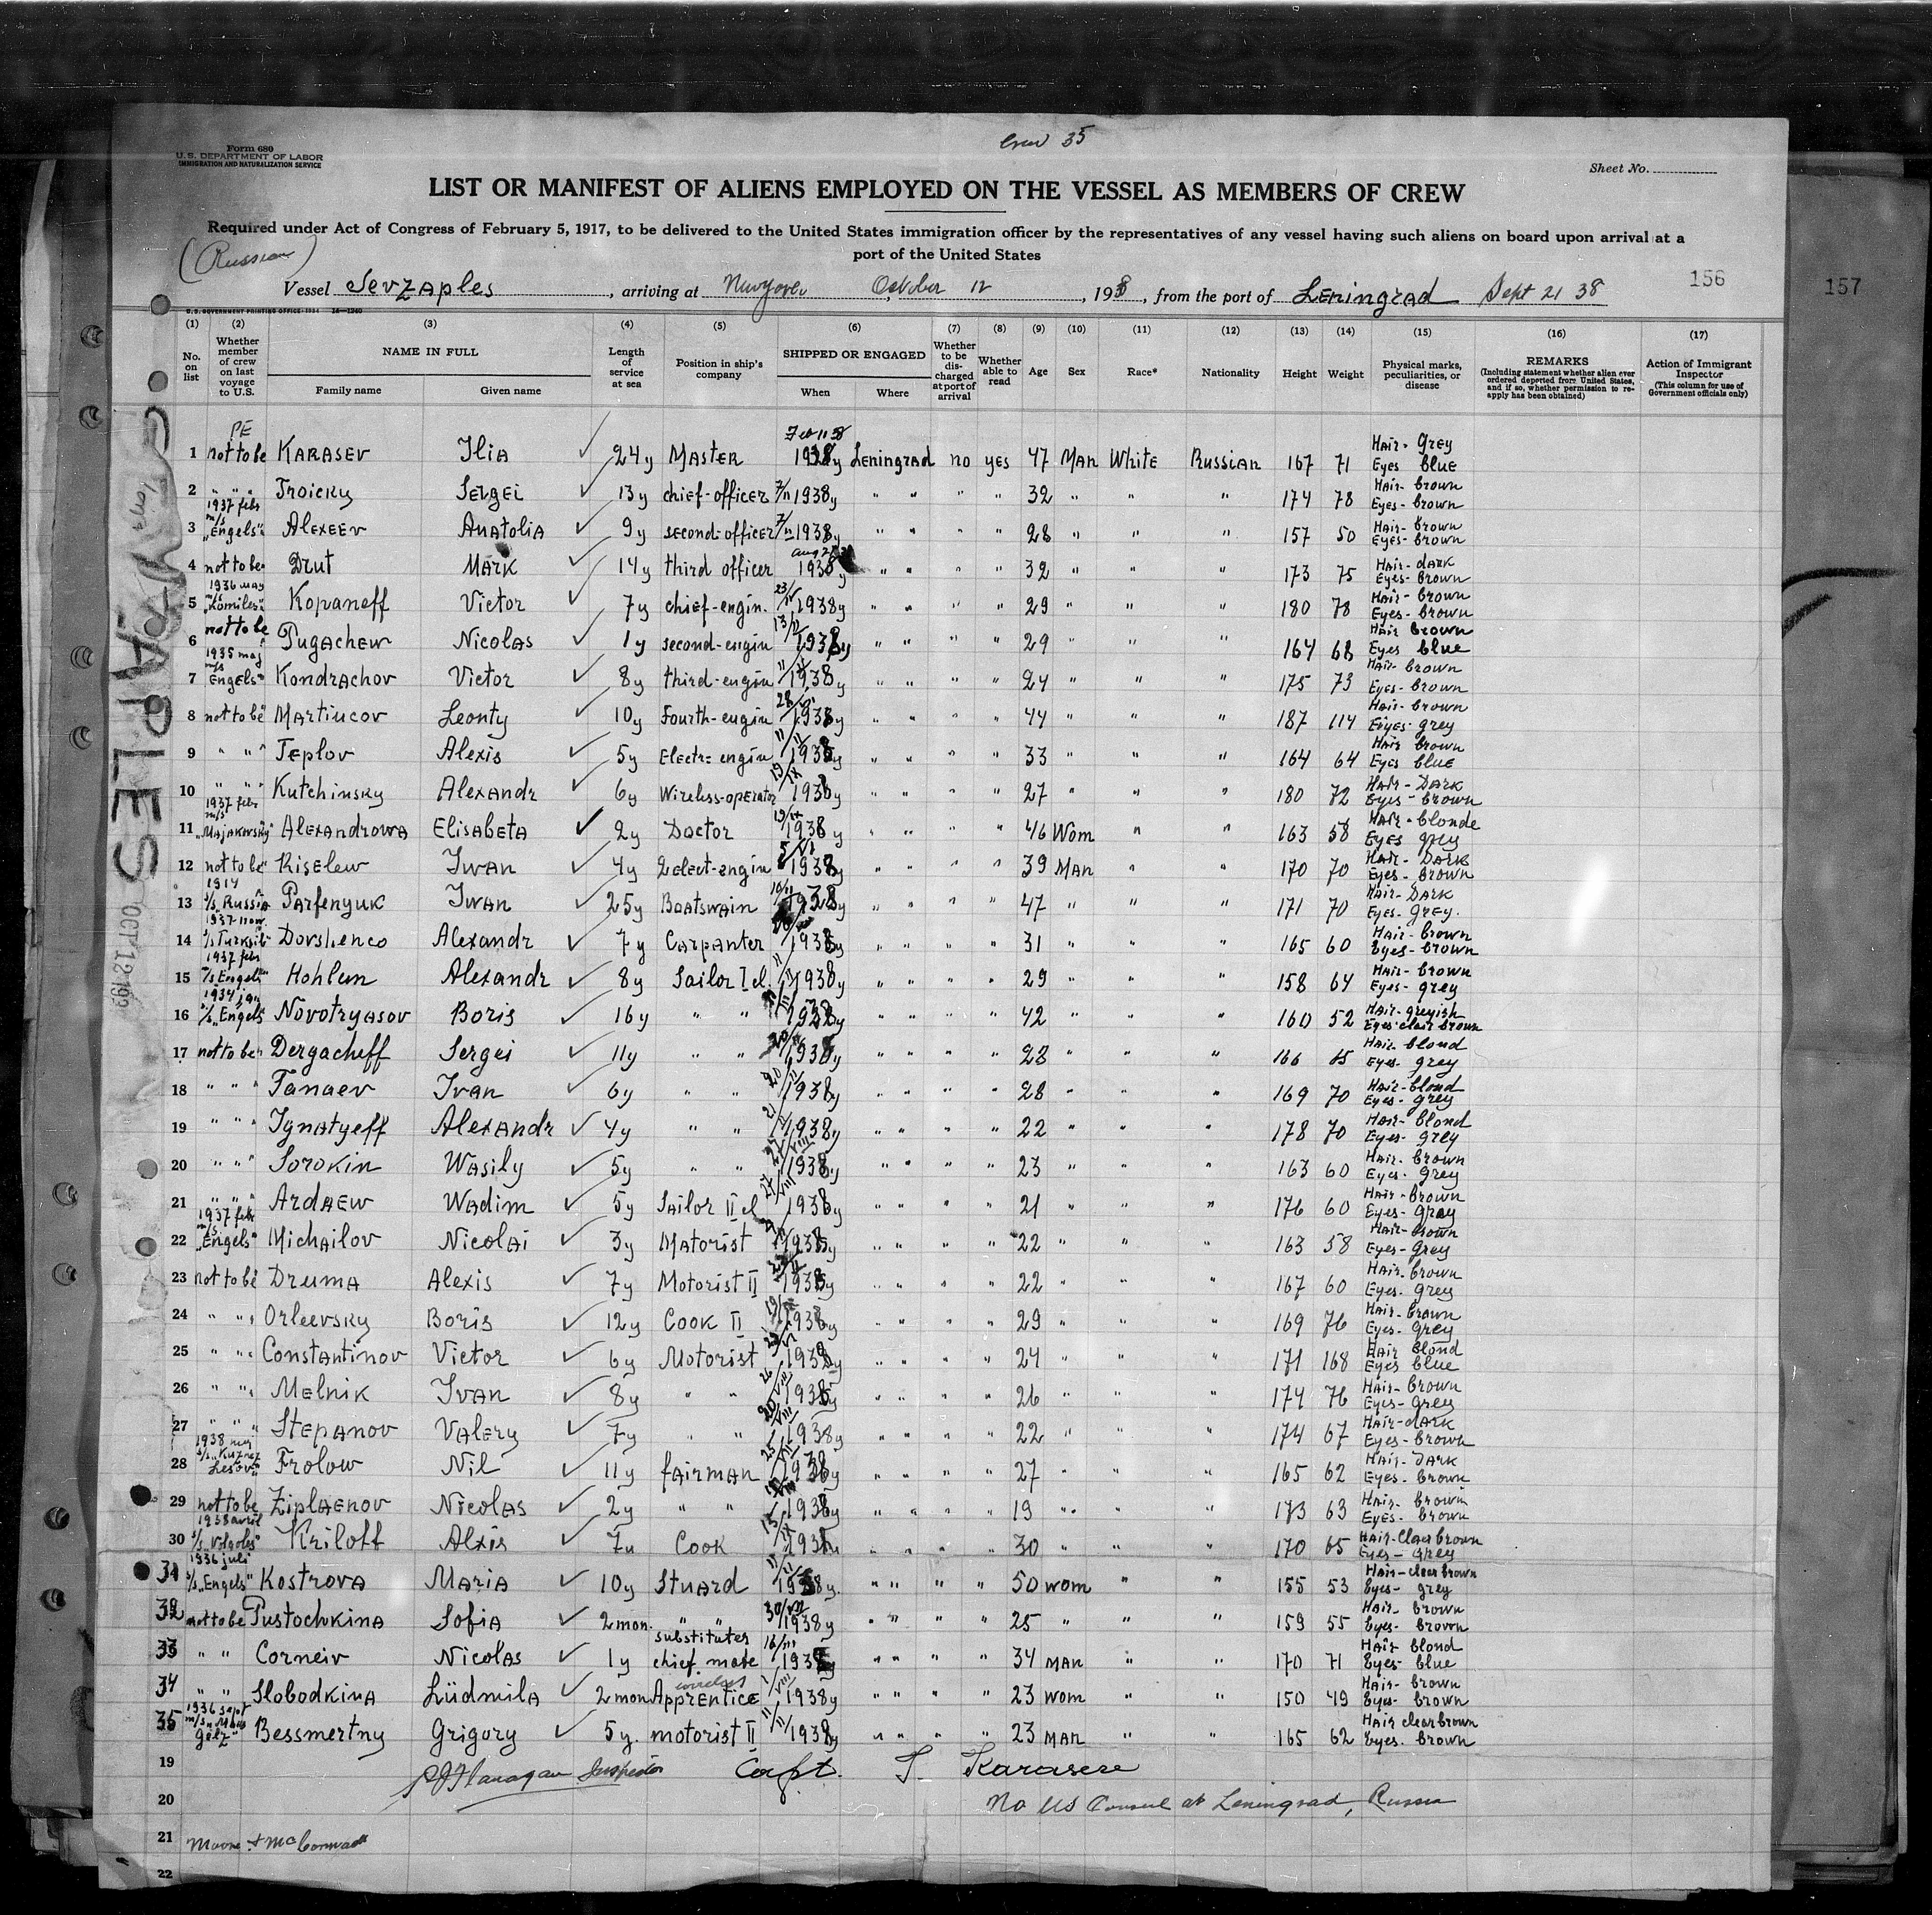 Crew 35
Form 680
U. S. DEPARTMENT OF LABOR
IMMIGRATION AND NATURALIZATION SERVICE
Sheet No.
LIST OR MANIFEST OF ALIENS EMPLOYED ON THE VESSEL AS MEMBERS OF CREW
Required under Act of Congress of February 5, 1917, to be delivered to the United States immigration officer by the representatives of any vessel having such aliens on board upon arrival at a
port of the United States
(Russian)
156
157
Vessel Sevzaples, arriving at October 12, 1938, from the port of Leningrad Sept 21 38
U. S. GOVERNMENT PRINTING OFFICE: 1934 14—1240
(1) (2) (3) (4) (5) (6) (7) (8) (9) (10) (11) (12) (13) (14) (15) (16) (17)
No. on list
Whether member of crew on last voyage to U.S.
NAME IN FULL
Family name
Given name
Length of service at sea
Position in ship's company
SHIPPED OR ENGAGED
When
Where
Whether to be discharged at port of arrival
Whether able to read
Age
Sex
Race*
Nationality
Height
Weight
Physical marks, peculiarities, or disease
REMARKS
(Including statement whether alien ever ordered deported from United States, and if so, whether permission to reapply has been obtained)
Action of Immigrant Inspector
(This column for use of Government officials only)
SEVZAPLES
OCT 12 193
1 not to be Karasev Ilia 24y Master Feb 11 38 1938y Leningrad no yes 47 Man White Russian 167 71 Hair- grey Eyes blue
2 " " " Troicky Sergei 13y chief-officer 1938y " " " " 32 " " " 174 78 Hair- brown Eyes- brown
3 1937 febr m/s "Engels" Alexeev Anatolia 9y second-officer 1938y " " " " 28 " " " 157 50 Hair- brown Eyes- brown
4 not to be Drut Mark 14y third officer 1938y " " " " 32 " " " 173 75 Hair- dark Eyes- brown
5 1936 may m/s "Komiles" Kopaneff Victor 7y chief-engin. 1938y " " " " 29 " " " 180 78 Hair- brown Eyes- brown
6 not to be Pugachew Nicolas 1y second-engin 1938y " " " " 29 " " " 164 68 Hair brown Eyes blue
7 1935 maj m/s Engels" Kondrachov Victor 8y third-engin 1938y " " " " 24 " " " 175 73 Hair- brown Eyes- brown
8 not to be Martiucov Leonty 10y Fourth-engin 1938y " " " " 44 " " " 187 114 Hair- brown Eiyes- grey
9 " " " Teplov Alexis 5y Electr= engin 1938y " " " " 33 " " " 164 64 Hair brown Eyes blue
10 " " " Kutchinsky Alexandr 6y Wireless-operator 1938y " " " " 27 " " " 180 72 Hair- Dark Eyes- brown
11 1937 febr m/s "Majakowsky" Alexandrowa Elisabeta 2y Doctor 1938y " " " " 46 Wom " " 163 58 Hair- blonde Eyes grey
12 not to be Kiselew Iwan 4y 2elect-engin 1938y " " " " 39 Man " " 170 70 Hair- Dark Eyes- brown
13 1914 s/s Russia Parfenyuk Iwan 25y Boatswain 1938y " " " " 47 " " " 171 70 Hair- Dark Eyes- grey.
14 1937 now s/s Turksib Dorshenco Alexandr 7y Carpanter 1938y " " " " 31 " " " 165 60 Hair- brown Eyes- brown
15 1937 febr s/s Engels" Hohlun Alexandr 8y Sailor I cl. 1938y " " " " 29 " " " 158 64 Hair- brown Eyes- grey
16 1934 jan s/s "Engels" Novotryasov Boris 16y " " 1938y " " " " 42 " " " 160 52 Hair- greyish Eyes clair brown
17 not to be Dergacheff Sergei 11y " " 1938y " " " " 28 " " " 166 65 Hair- blond Eyes- grey
18 " " " Tanaev Ivan 6y " " 1938y " " " " 28 " " " 169 70 Hair- blond Eyes- grey
19 " " " Ignatyeff Alexandr 4y " " 1938y " " " " 22 " " " 178 70 Hair- blond Eyes- grey
20 " " " Sorokin Wasily 5y " " 1938y " " " " 23 " " " 163 60 Hair- brown Eyes- grey
21 " " " Ardaew Wadim 5y Sailor II cl 1938y " " " " 21 " " " 176 60 Hair- brown Eyes- gray
22 1937 febr m/s "Engels" Michailov Nicolai 3y Matorist 1938y " " " " 22 " " " 163 58 Hair- brown Eyes- grey
23 not to be Druma Alexis 7y Motorist II 1938y " " " " 22 " " " 167 60 Hair- brown Eyes- grey
24 " " " Orleevsky Boris 12y Cook II 1938y " " " " 29 " " " 169 76 Hair- brown Eyes- grey
25 " " " Constantinov Victor 6y Motorist 1938y " " " " 24 " " " 171 168 Hair blond Eyes blue
26 " " " Melnik Ivan 8y " " 1938y " " " " 26 " " " 174 76 Hair- brown Eyes- grey
27 " " " Stepanov Valery 7y " " 1938y " " " " 22 " " " 174 67 Hair- dark Eyes- brown
28 1938 s/s "Kuznez Lesov" Frolow Nil 11y fairman 1938y " " " " 27 " " " 165 62 Hair- Dark Eyes- brown
29 not to be Ziplaenov Nicolas 2y " " 1938y " " " " 19 " " " 173 63 Hair- brown Eyes- brown
30 1938 avril s/s "Volgoles" Kriloff Alxis 7y Cook 1938y " " " " 30 " " " 170 65 Hair- Clear brown Eyes- grey
31 1936 juli s/s "Engels" Kostrova Maria 10y Stuard 1938y. " " " " 50 wom " " 155 53 Hair- clear brown Eyes- grey
32 not to be Pustochkina Sofia 2 mon. " " 1938y " " " " 25 " " " 159 55 Hair- brown Eyes- brown
33 " " Corneiv Nicolas 1y substitutes chief mate 1938y " " " " 34 man " " 170 71 Hair blond Eyes- blue
34 " " Slobodkina Lüdmila 2 mon wireless Apprentice 1938y " " " " 23 wom " " 150 49 Hair- brown Eyes- brown
35 1936 sept m/s "Max Gelz" Bessmertny Grigory 5y. motorist II 1938y " " " " 23 man " " 165 62 Hair clear brown Eyes. brown
19 PJ Flanagan Inspector Capt. I. Karasev
20 No US Consul at Leningrad, Russia
21 Moore + McCormack
22